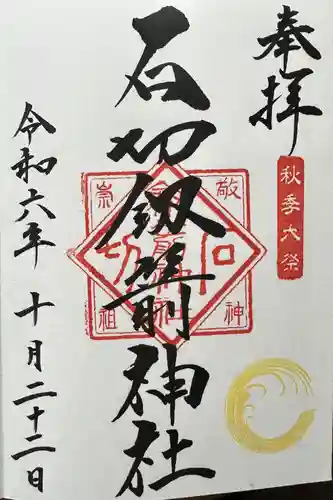 奉拝
秋季大祭
石切劔箭神社
敬神
崇祖
令和六年十月二十二日